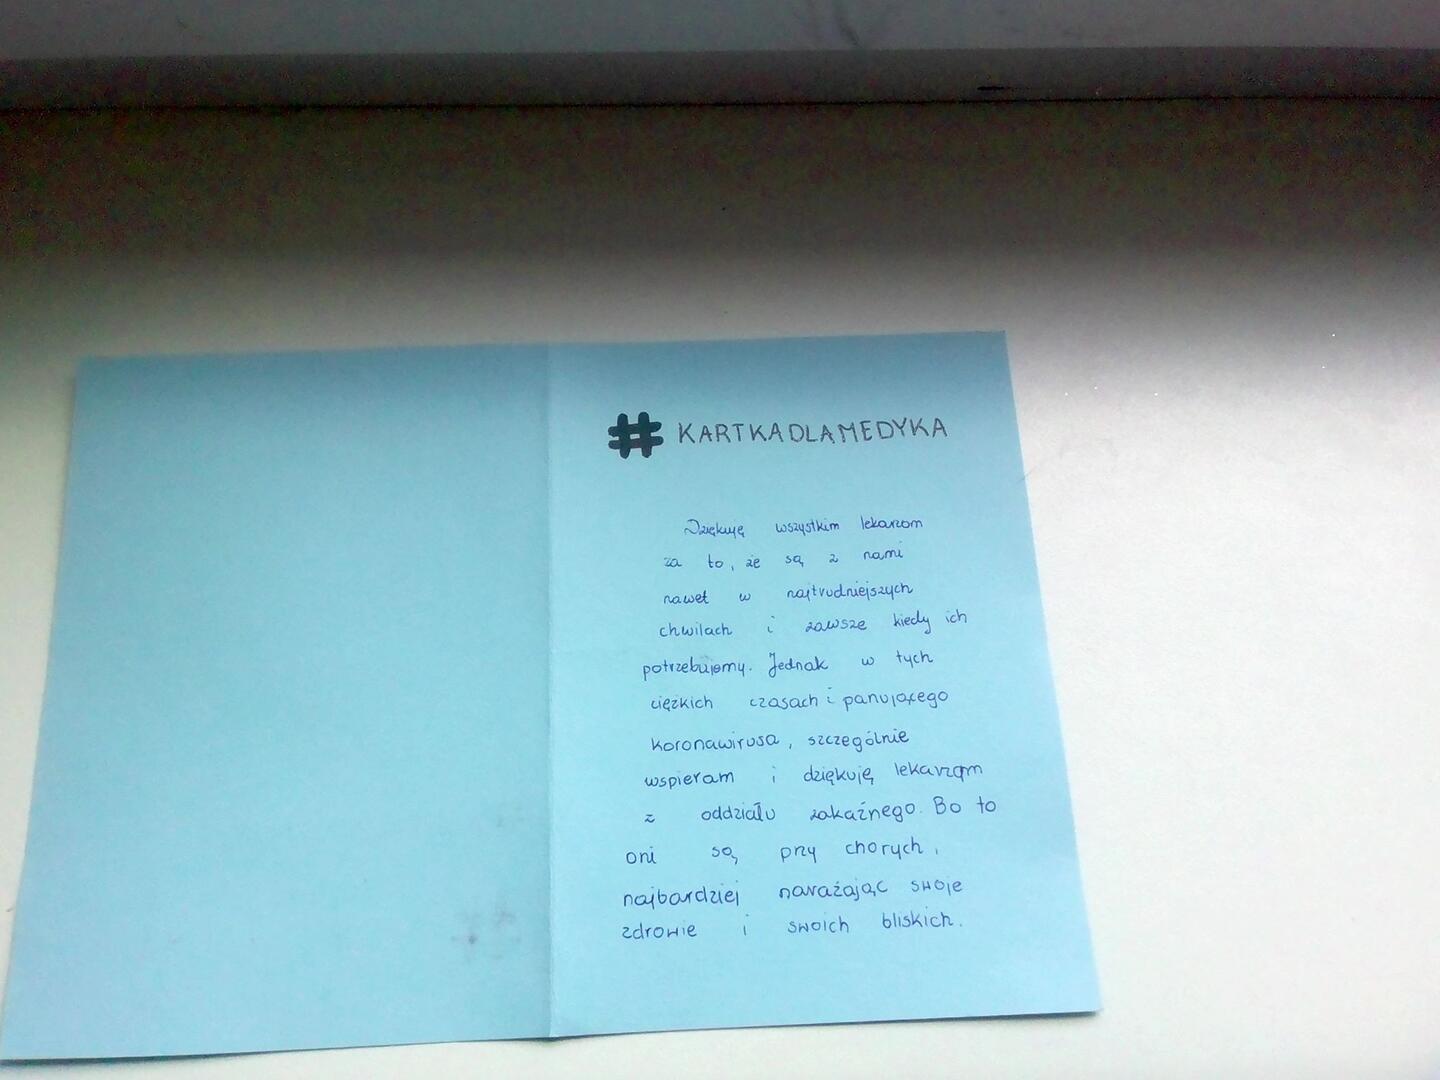 #KARTKADLAMEDYKA
Dziękuję wszystkim lekarzom
za to, że są z nami
nawet w najtrudniejszych
chwilach i zawsze kiedy ich
potrzebujemy. Jednak w tych
ciężkich czasach i panującego
koronawirusa, szczególnie
wspieram i dziękuję lekarzom
z oddziału zakaźnego. Bo to
oni są przy chorych,
najbardziej narażając swoje
zdrowie i swoich bliskich.